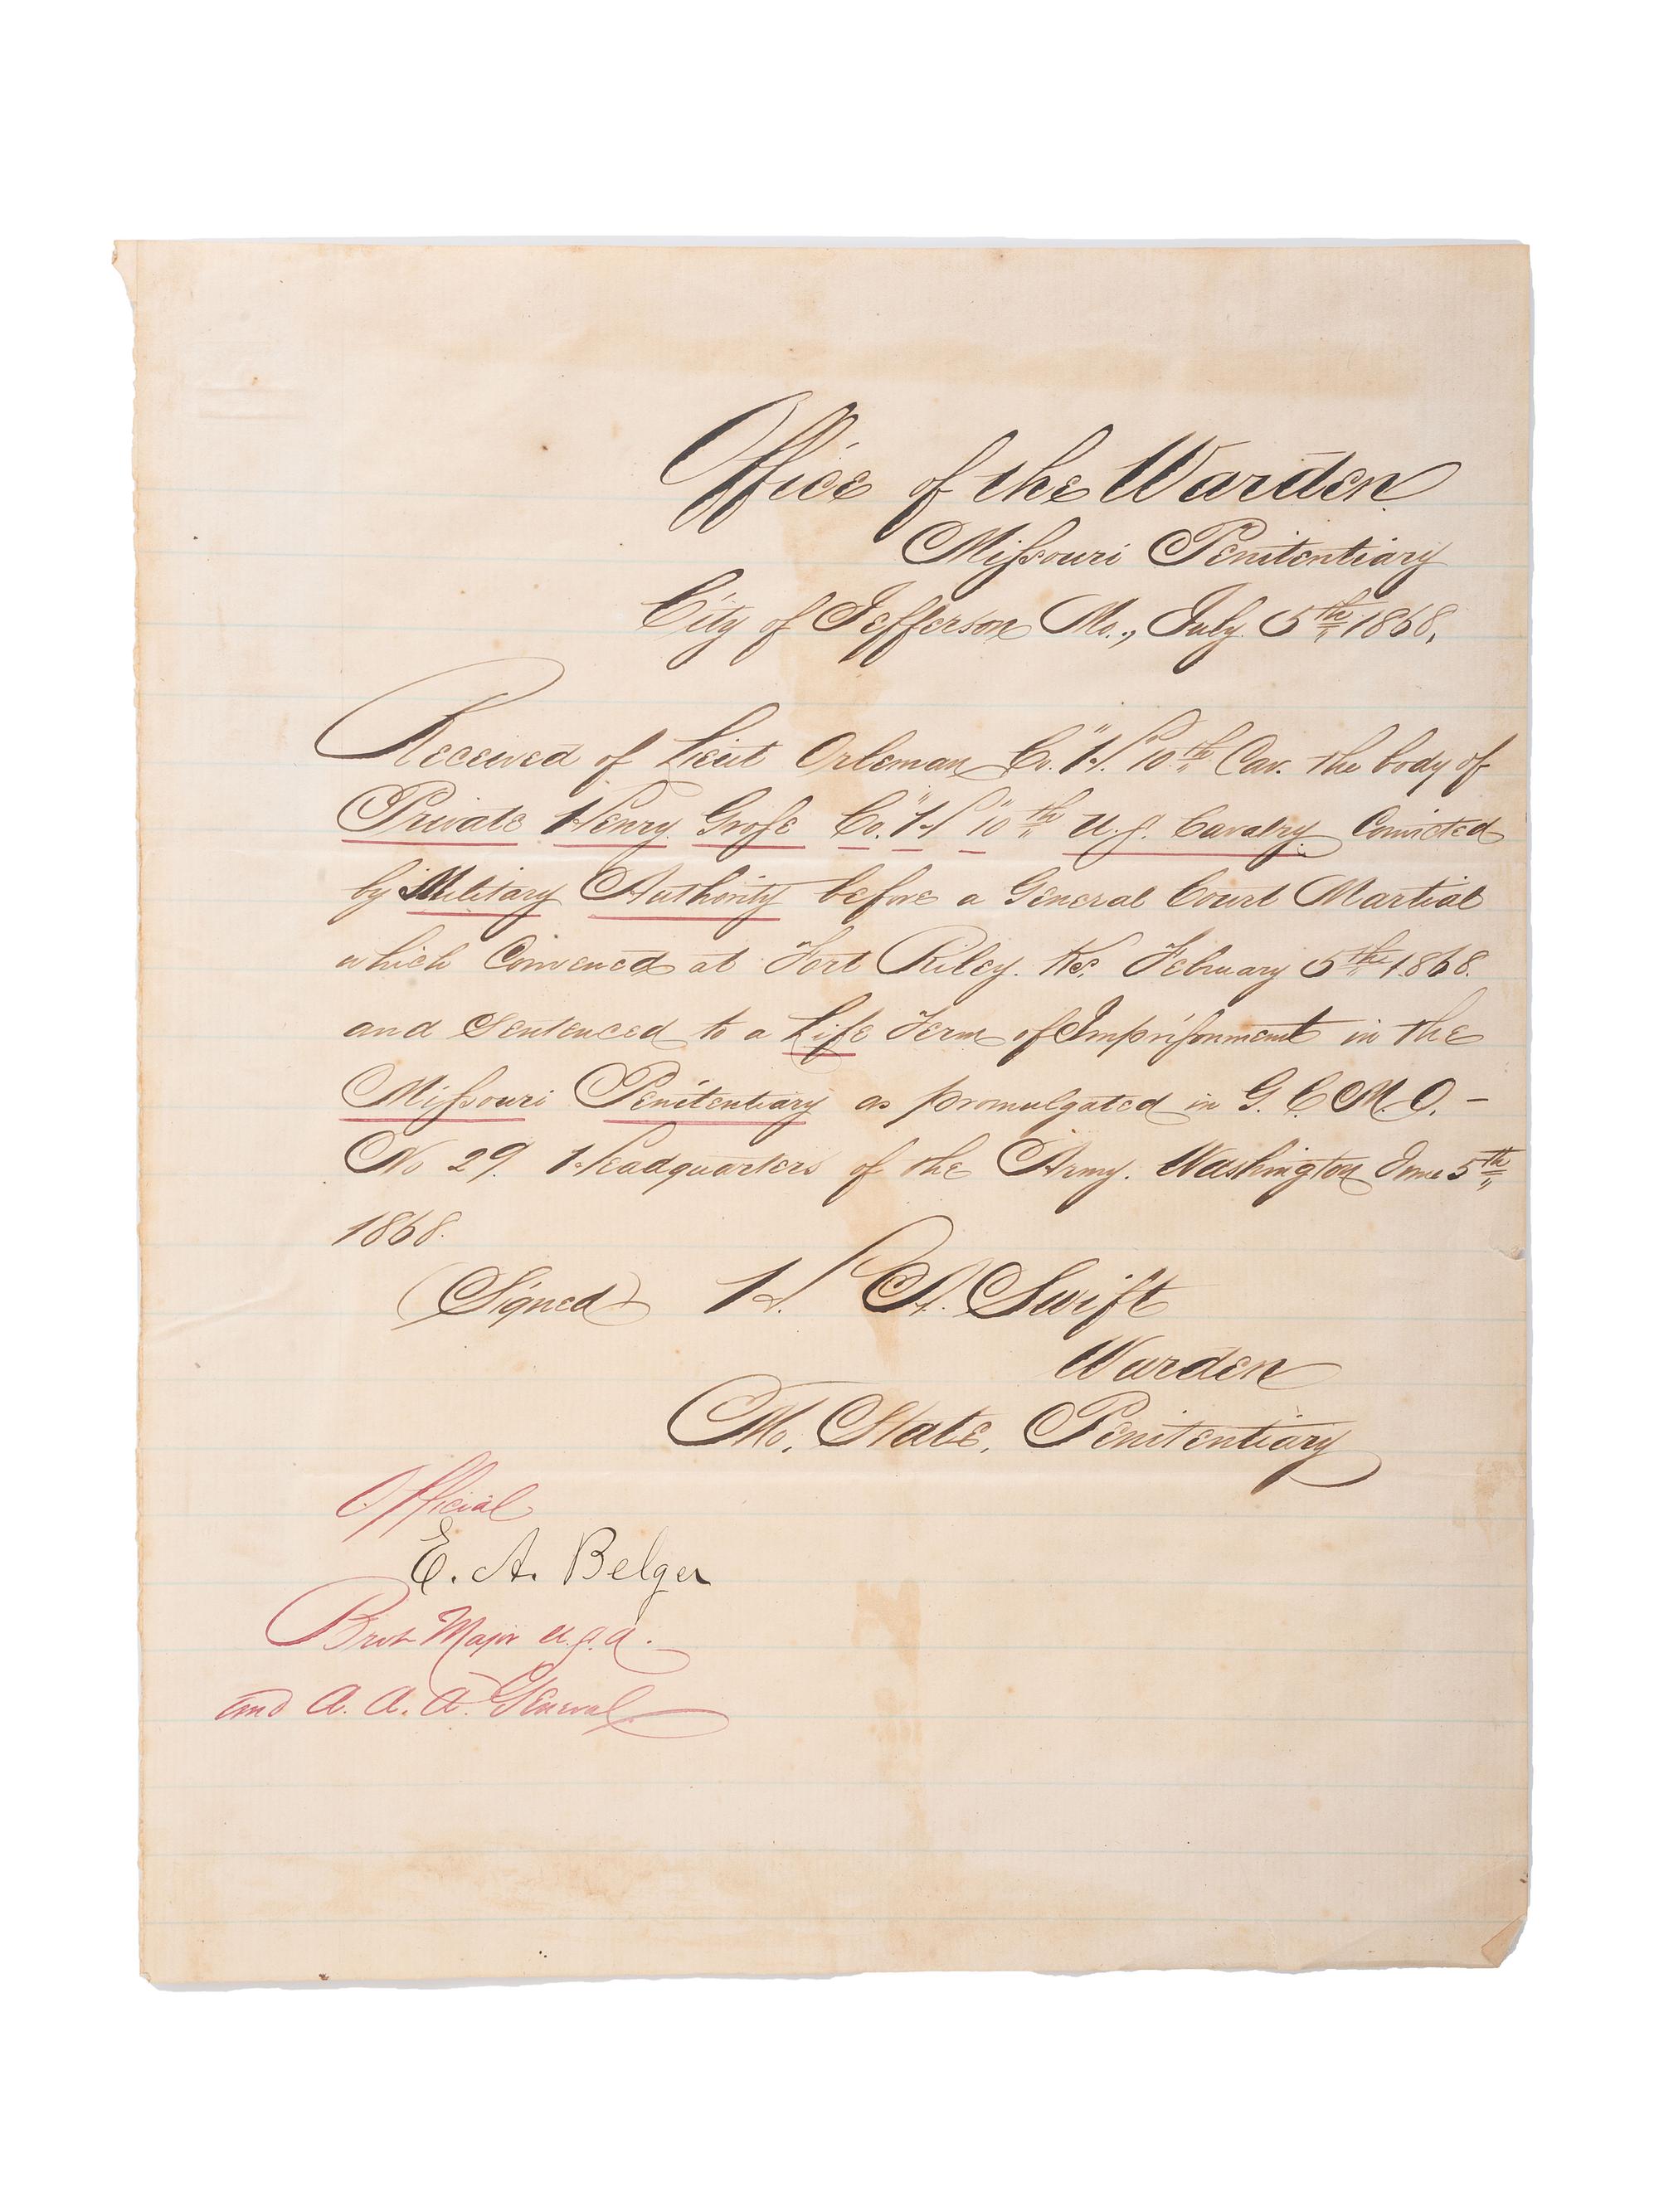 Office of the Warden
Missouri Penitentiary
City of Jefferson Mo., July 5th 1868,
Received of Lieut Orleman Co. "H." 10th Cav. the body of
Private Henry Grose Co. "H" 10th U.S. Cavalry Convicted
by Military Authority before a General Court Martial
which Convened at Fort Riley. Ks. February 5th 1868.
and Sentenced to a Life Term of Imprisonment in the
Missouri Penitentiary as promulgated in G. C. M. O. –
No 29. Headquarters of the Army. Washington June 5th
1868.
(Signed) H. A. Swift
Warden
Mo. State. Penitentiary
Official
E. A. Belger
Brvt Major U.S.A.
and A. A. A. General